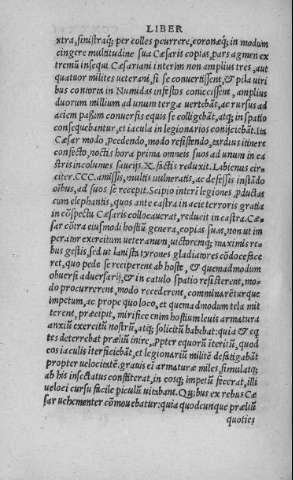 LIBER
xtra, sinistraq; per colles pcurrere, coronaeq; in modum
cingere multitudine sua Cæsaris copias, pars agmen ex
tremũ insequi. Cæsariani interim non amplius tres, aut
quatuor milites veterani, si se conuertissent, & pila uiri
bus contorta in Numidas infestos coniecissent, amplius
duorum millium ad unum terga uertebãt, ac rursus ad
aciem passim conuersis equis se colligebãt, atq; in spatio
consequebantur, et iacula in legionarios conijciebãt. Ita
Cæsar modo pcedendo, modo resistendo, tardius itinere
confecto, noctis hora prima omneis suos ad unum in ca
stra incolumes, saucijs. X. factis reduxit. Labienus cir
citer. CCC. amissis, multis uulneratis, ac defessis instãdo
oĩbus, ad suos se recepit. Scipio interĩ legiones pductas
cum elephantis, quos ante castra in acie terroris gratia
in cõspectu Cæsaris collocauerat, reducit in castra. Cæ-
sar cõtra eiusmodi hostiũ genera, copias suas, non ut im
perator exercitum ueteranum, uictoremq; maximis re-
bus gestis, sed ut lanista tyrones gladiatores cõdocefice
ret, quo pede se reciperent ab hoste, & quemadmodum
obuersi aduersarijs, & in catulo spatio resisterent, mo-
do procurrerent, modo recederent, comminarẽturque
impetum, ac prope quo loco, et quemadmodum tela mit
terent, præcipit, mirifice enim hostium leuis armatura
anxiũ exercitũ nostrũ, atq; solicitũ habebat: quia & eq
tes deterrebat prœliũ inire, ppter equorũ iteritũ, quod
eos iaculis iterficiebãt, et legionariũ militẽ defatigabãt
propter velocitatẽ. grauis ei armaturæ miles, simulatq;
ab his insectatus constiterat, in eosq; impetũ fecerat, illi
ueloci cursu facile piculũ uitabant. Qq̃bus ex rebus Cæ
sar uehementer cõmouebatur: quia quodcunque præliũ
quoties